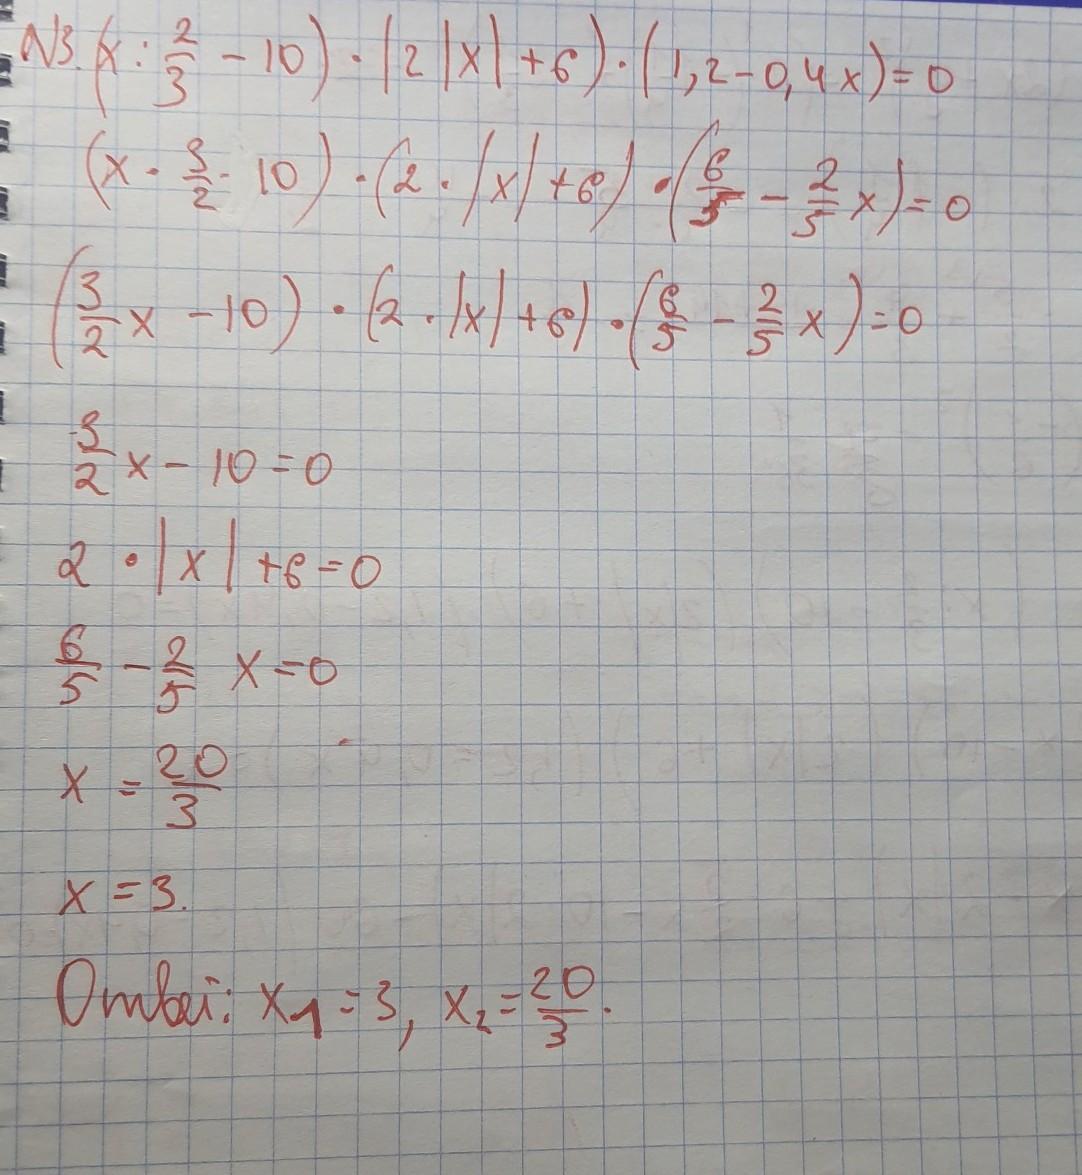 №3. (x : 2/3 - 10) · (2|x| + 6) · (1,2 - 0,4x) = 0
(x · 3/2 - 10) · (2 · |x| + 6) · (6/5 - 2/5 x) = 0
(3/2 x - 10) · (2 · |x| + 6) · (6/5 - 2/5 x) = 0
3/2 x - 10 = 0
2 · |x| + 6 = 0
6/5 - 2/5 x = 0
x = 20/3
x = 3.
Ответ: x₁ = 3, x₂ = 20/3.